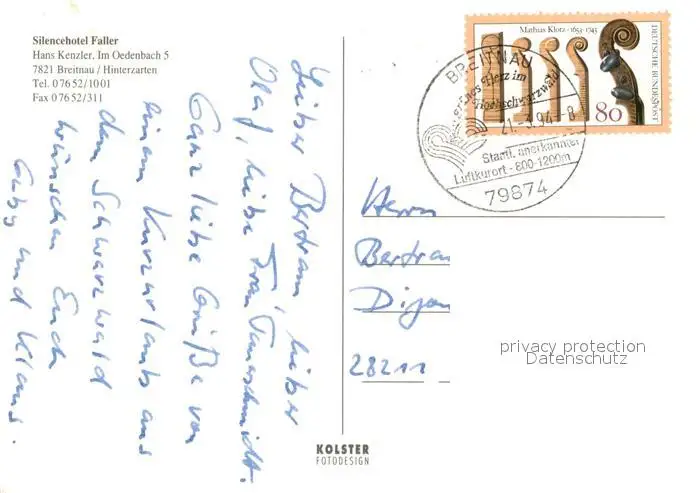 Silencehotel Faller
Hans Kenzler, Im Oedenbach 5
7821 Breitnau / Hinterzarten
Tel. 07652/1001
Fax 07652/311
Lieber Bertram, lieber
Olaf, liebe Frau
Ganz liebe Grüße von
einem Kurzurlaub aus
dem Schwarzwald
wünschen Euch
Gaby und Klaus.
Mathias Klotz · 1653-1743
DEUTSCHE BUNDESPOST
80
BREITNAU
Herz im
Hochschwarzwald
21.-3.94.-8
Staatl. anerkannter
Luftkurort - 800-1200m
79874
Herrn
Bertram
28211
privacy protection
Datenschutz
KOLSTER
FOTODESIGN